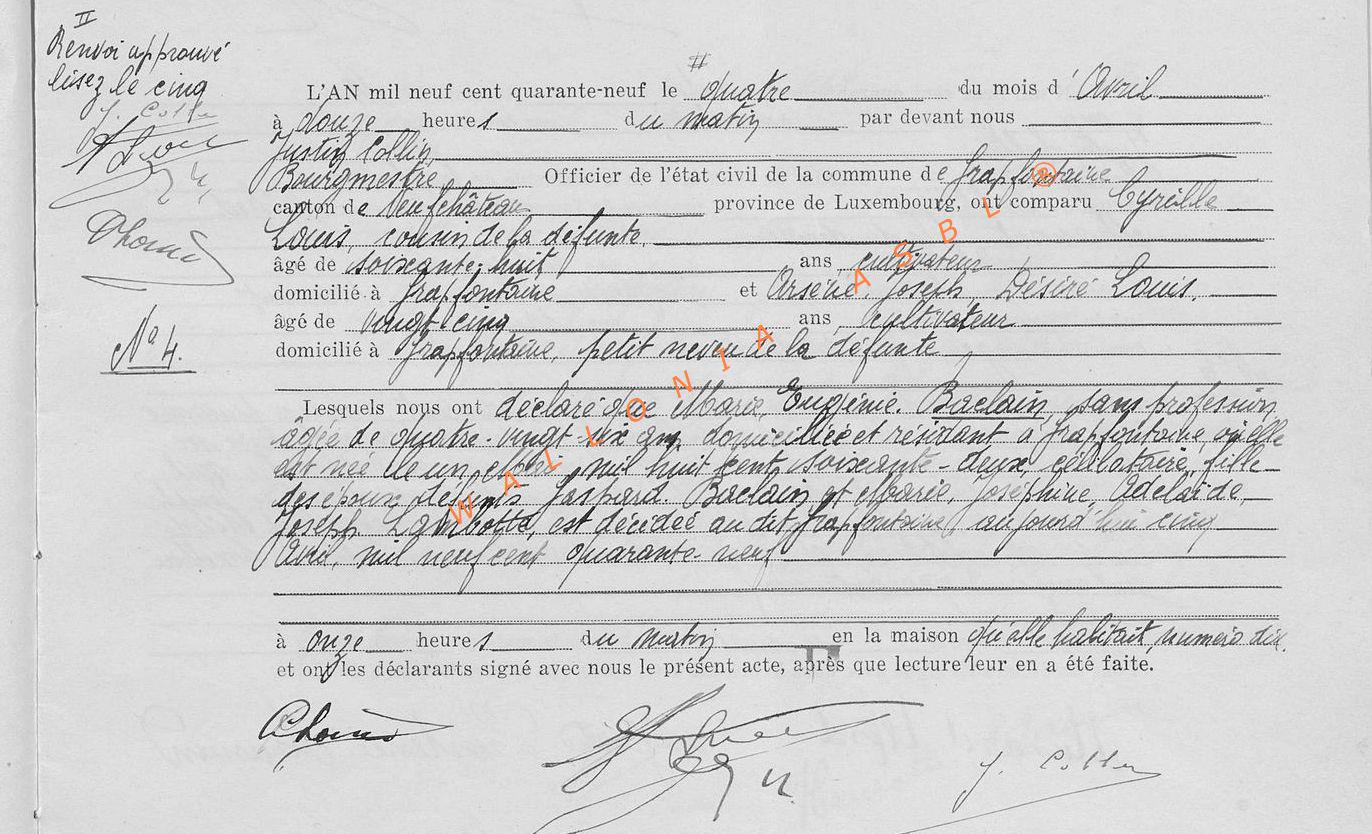 II
Renvoi approuvé
lisez le cinq
J. Collin
N° 4.
#
L'AN mil neuf cent quarante-neuf le quatre du mois d'Avril
à douze heures du matin par devant nous
Justin Collin
Bourgmestre Officier de l'état civil de la commune de Grapfontaine
canton de Neufchâteau province de Luxembourg, ont comparu Cyrille
Louis, cousin de la défunte,
âgé de soixante-huit ans cultivateur
domicilié à Grapfontaine et Arsène, Joseph Désiré Louis,
âgé de vingt cinq ans cultivateur
domicilié à Grapfontaine, petit neveu de la défunte
Lesquels nous ont déclaré que Marie, Eugénie. Baclain, sans profession
âgée de quatre-vingt-six ans, domiciliée et résidant à Grapfontaine, où elle
est née le un mil huit cent soixante-deux célibataire, fille
des époux défunts Gaspard. Baclain et Marie, Joséphine, Adélaïde,
Joseph Lambotte, est décédée au dit Grapfontaine, aujourd'hui cinq
Avril, mil neuf cent quarante-neuf
à onze heures du matin en la maison qu'elle habitait, numéro dix
et ont les déclarants signé avec nous le présent acte, après que lecture leur en a été faite.
CLouis J. Collin
WALLONIA ASBL ®